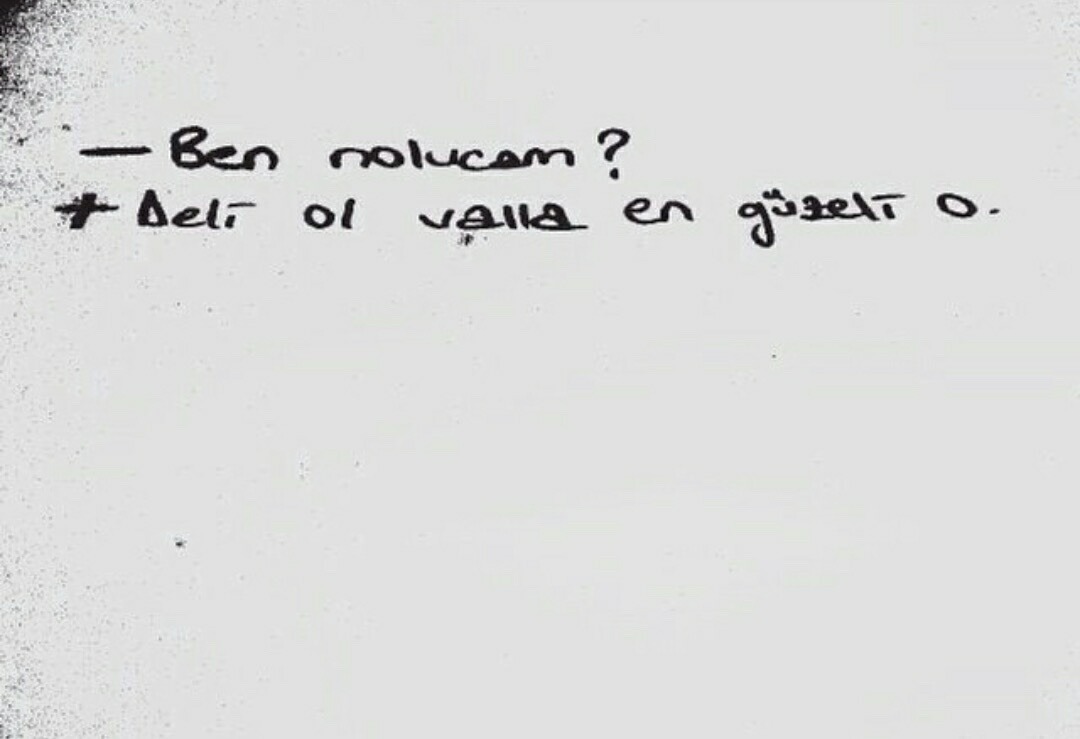 — Ben nolucam?
+ Deli ol valla en güzeli o.